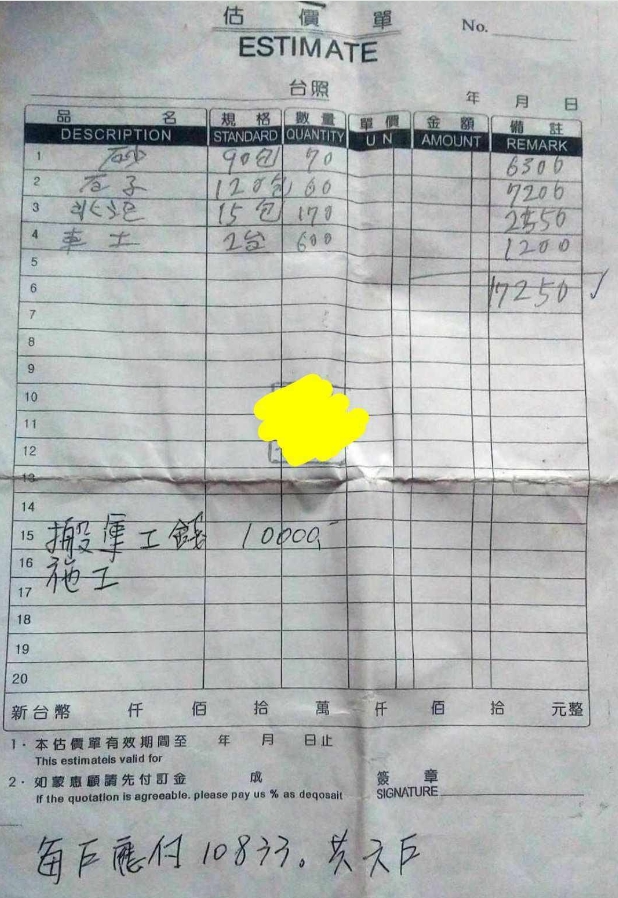 估價單
ESTIMATE
No.
台照
年 月 日
品名 規格 數量 單價 金額 備註
DESCRIPTION STANDARD QUANTITY U N AMOUNT REMARK
1 砂 90包 70 6300
2 石子 120包 60 7200
3 水泥 15包 170 2550
4 車土 2台 600 1200
5
6 17250
7
8
9
10
11
12
13
14
15 搬運工錢 10000
16 施工
17
18
19
20
新台幣 仟 佰 拾 萬 仟 佰 拾 元整
1．本估價單有效期間至 年 月 日止
This estimateis valid for
2．如蒙惠顧請先付訂金 成 簽章
If the quotation is agreeable. please pay us % as deqosait SIGNATURE
每戶應付10833。共 戶